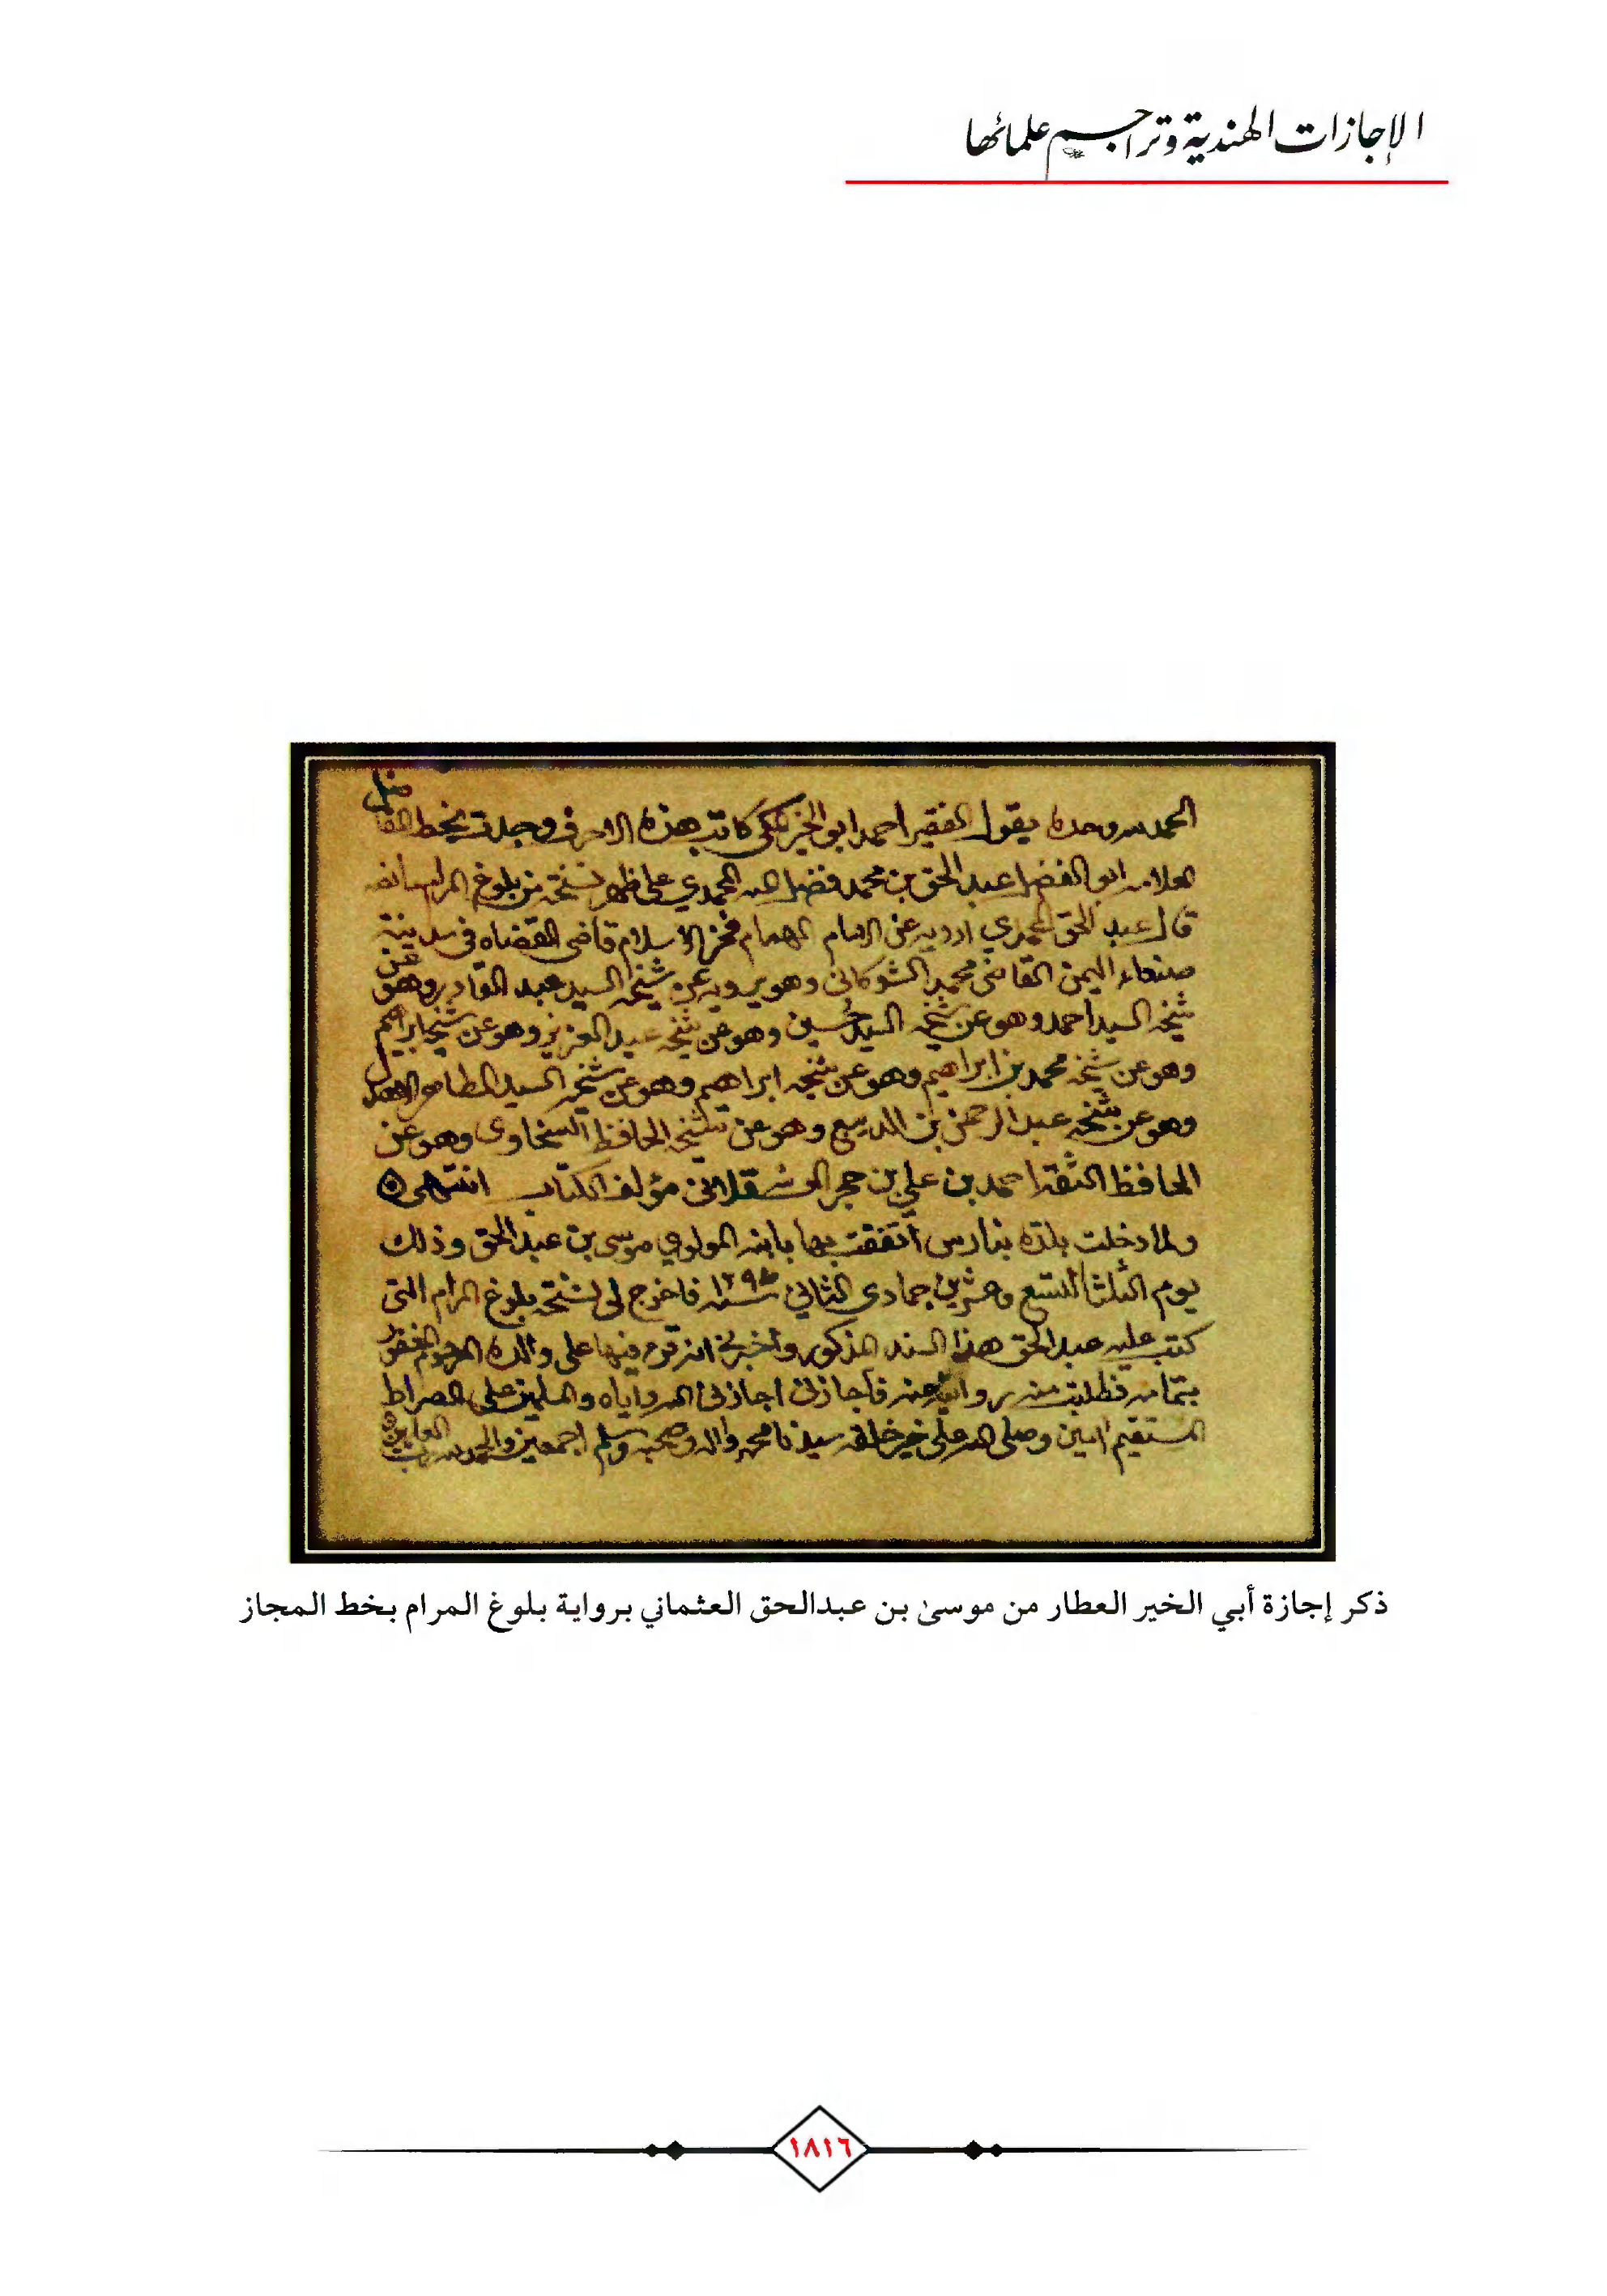 الإجازات الهندية وتراجم علمائها
الحمد لله وحده يقول الفقير احمد ابو الخير المكي كاتب هذه الاحرف وجدت بخط الفاضل
العلامه ابو الفضل عبد الحق بن محمد فضل الله المحمدي على ظهر نسخته من بلوغ المرام ما نصه
قال عبد الحق المحمدي ارويه عن الامام الهمام فخر الاسلام قاضى القضاه فى مدينة
صنعاء اليمن القاضى محمد الشوكانى وهو يرويه عن شيخه السيد عبد القادر وهو عن
شيخه السيد احمد وهو عن شيخه السيد حسين وهو عن شيخه عبد العزيز وهو عن شيخه ابراهيم
وهو عن شيخه محمد بن ابراهيم وهو عن شيخه ابراهيم وهو عن شيخه السيد الطاهر الاهدل
وهو عن شيخه عبد الرحمن بن الديبع وهو عن شيخه الحافظ السخاوى وهو عن
الحافظ الثقة احمد بن علي بن حجر العسقلانى مؤلف الكتاب انتهى
ولما دخلت بلدة بنارس اتفقت بها بابنه المولوي موسى بن عبد الحق وذلك
يوم الثلثا التسع وعشرين جمادى الثاني سنه فاخرج لى نسخته بلوغ المرام التى
كتب عليه عبد الحق هذا السند المذكور وأخبرني انه قرء فيها على والده المرحوم
بتمامه فطلبت منه روايته عنه فأجازنى اجازنى الله واياه والمسلمين على الصراط
المستقيم امين وصلى الله على خير خلقه سيدنا محمد واله وصحبه وسلم اجمعين والحمد لله رب العالمين
ذكر إجازة أبي الخير العطار من موسىٰ بن عبدالحق العثماني برواية بلوغ المرام بخط المجاز
١٨١٦